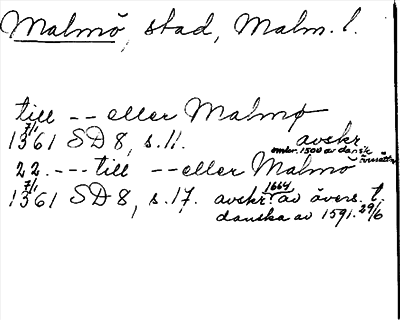 Malmö, stad, Malm. l.
till -- eller Malmø
7/1 1361 SD 8, s. 11. avskr.
omkr. 1500 av dansk översättn.
22. --- till -- eller Malmö
7/1 1361 SD 8, s. 17. avskr. 1664 av övers. t.
danska av 1591. 29/6